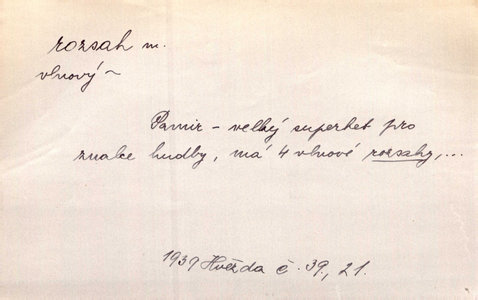 rozsah m.
vlnový ~
Pamir – velký superhet pro
znalce hudby, má 4 vlnové rozsahy,...
1939 Hvězda č. 39, 21.